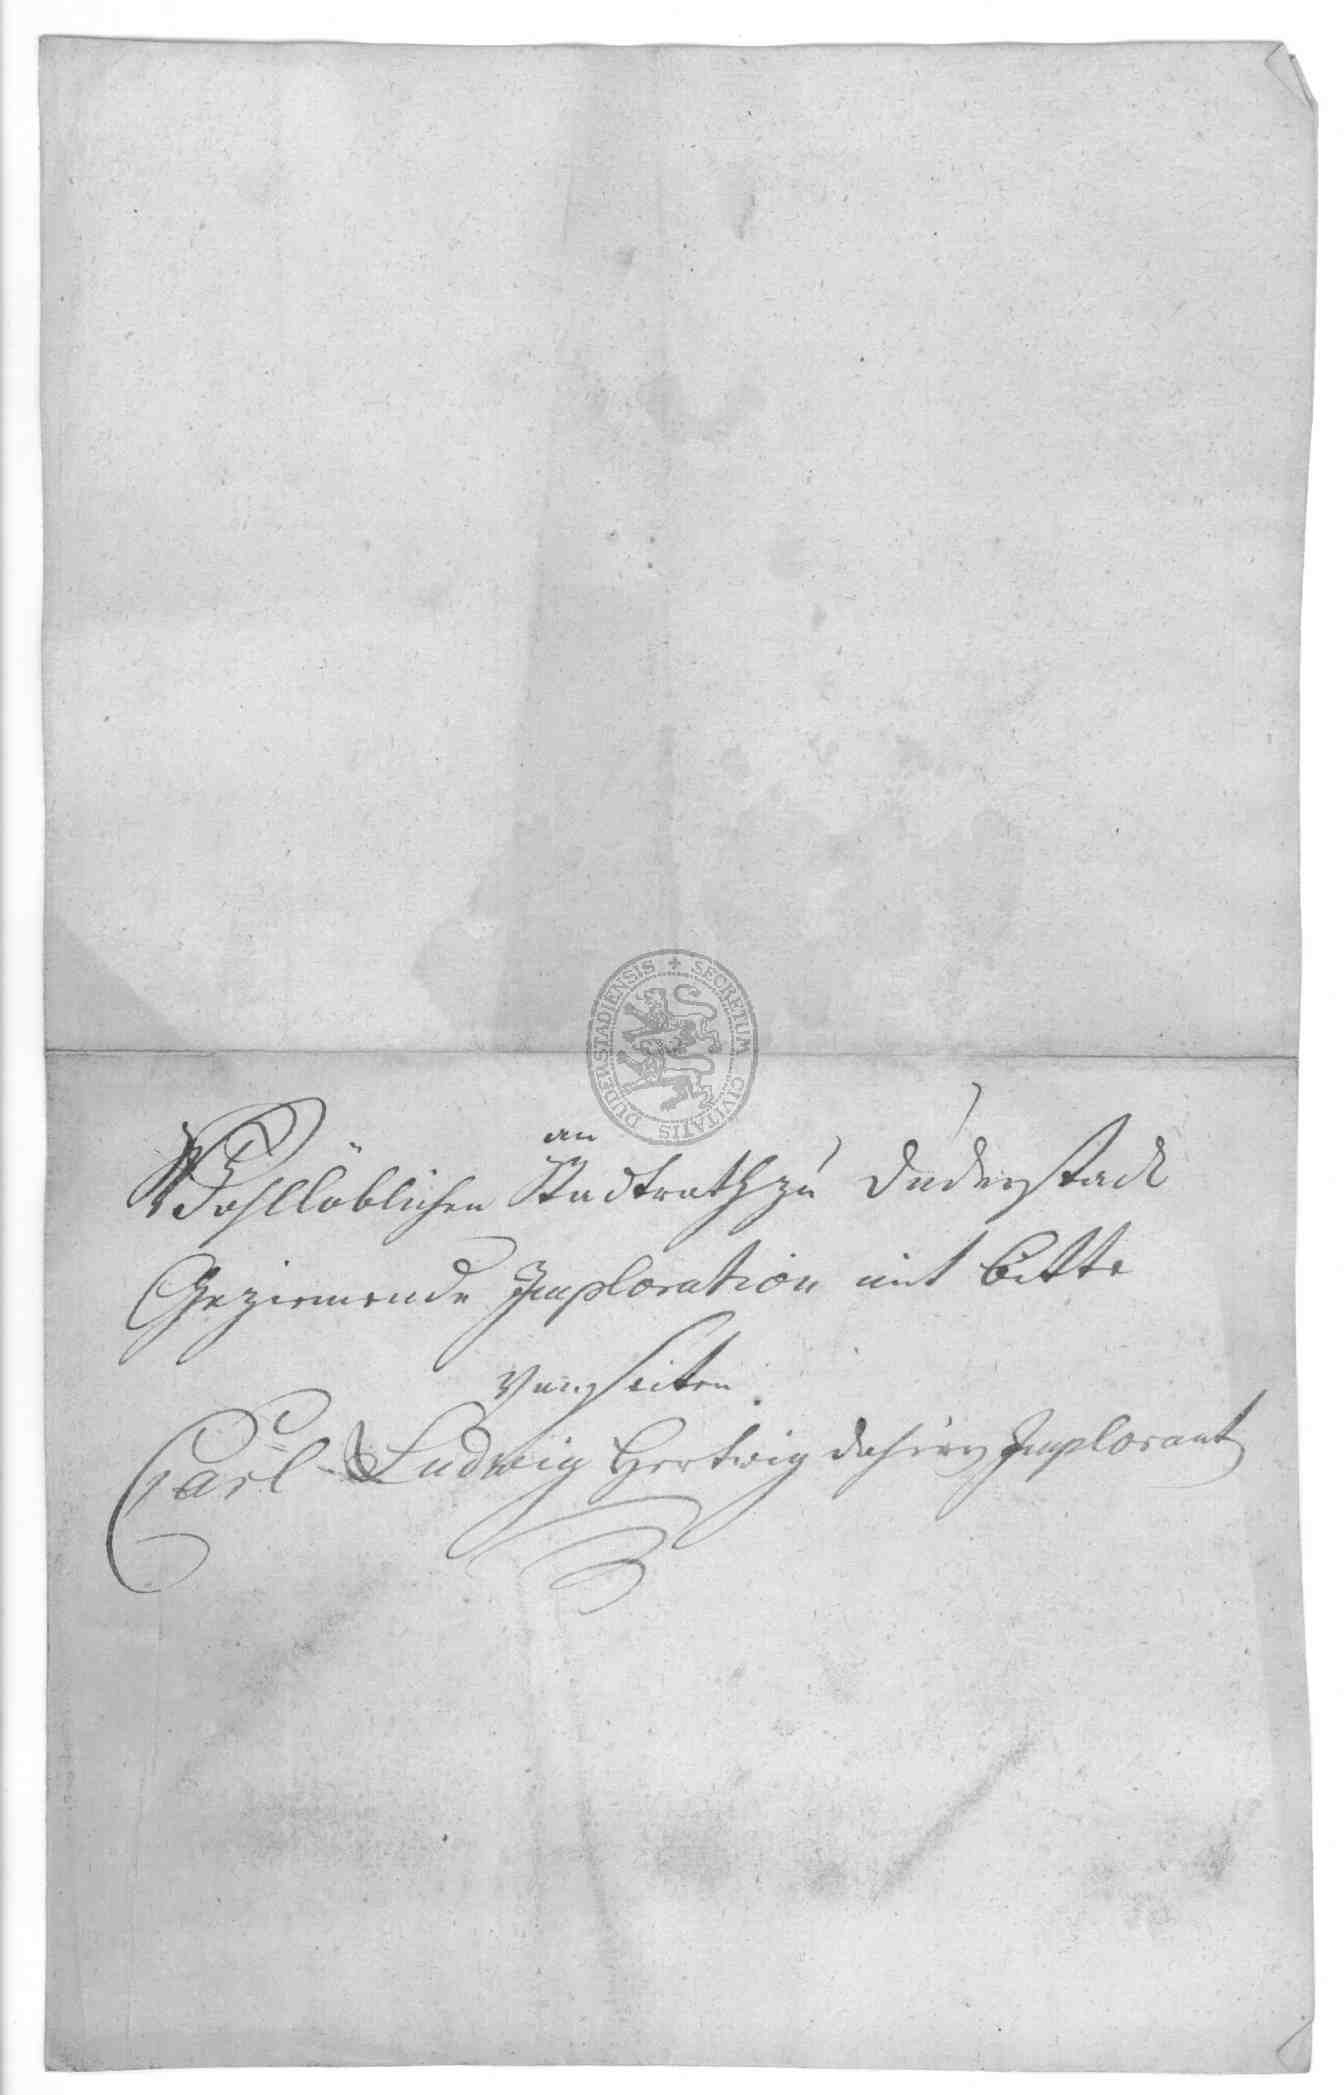 an
Wohllöblichen Stadtrath zu Duderstadt
Geziemende Imploration mit bitte
von seiten
Carl Ludwig Hertwig dahier Implorant
SECRETUM CIVITATIS DUDERSTADIENSIS